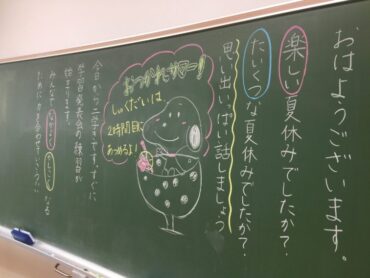 おはようございます。
楽しい夏休みでしたか?
たいくつな夏休みでしたか?
思い出いっぱい話しましょう
おつかれサマー!
しゅくだいは
2時間目に
あつめるよ!
今日から二学期です。すぐに
学習発表会の練習が
始まります。
みんなで
なる
ために力を合わせていこう